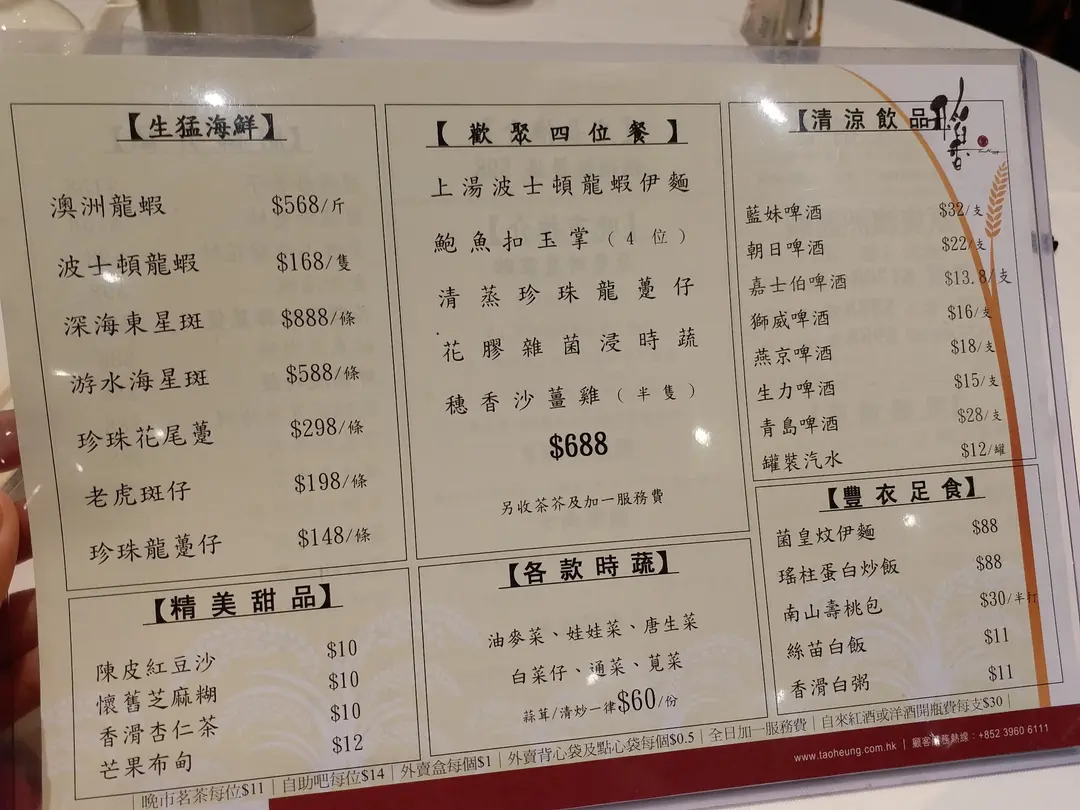 【生猛海鮮】
澳洲龍蝦 $568/斤
波士頓龍蝦 $168/隻
深海東星斑 $888/條
游水海星斑 $588/條
珍珠花尾躉 $298/條
老虎斑仔 $198/條
珍珠龍躉仔 $148/條
【精美甜品】
陳皮紅豆沙 $10
懷舊芝麻糊 $10
香滑杏仁茶 $10
芒果布甸 $12
【歡聚四位餐】
上湯波士頓龍蝦伊麵
鮑魚扣玉掌(4位)
清蒸珍珠龍躉仔
花膠雜菌浸時蔬
穗香沙薑雞(半隻)
$688
另收茶芥及加一服務費
【各款時蔬】
油麥菜、娃娃菜、唐生菜
白菜仔、通菜、莧菜
蒜茸/清炒一律$60/份
【清涼飲品】
藍妹啤酒 $32/支
朝日啤酒 $22/支
嘉士伯啤酒 $13.8/支
獅威啤酒 $16/支
燕京啤酒 $18/支
生力啤酒 $15/支
青島啤酒 $28/支
罐裝汽水 $12/罐
【豐衣足食】
菌皇炆伊麵 $88
瑤柱蛋白炒飯 $88
南山壽桃包 $30/半打
絲苗白飯 $11
香滑白粥 $11
| 晚市茗茶每位$11 | 自助吧每位$14 | 外賣盒每個$1 | 外賣背心袋及點心袋每個$0.5 | 全日加一服務費 | 自來紅酒或洋酒開瓶費每支$30 |
www.taoheung.com.hk | 顧客服務熱線:+852 3960 6111